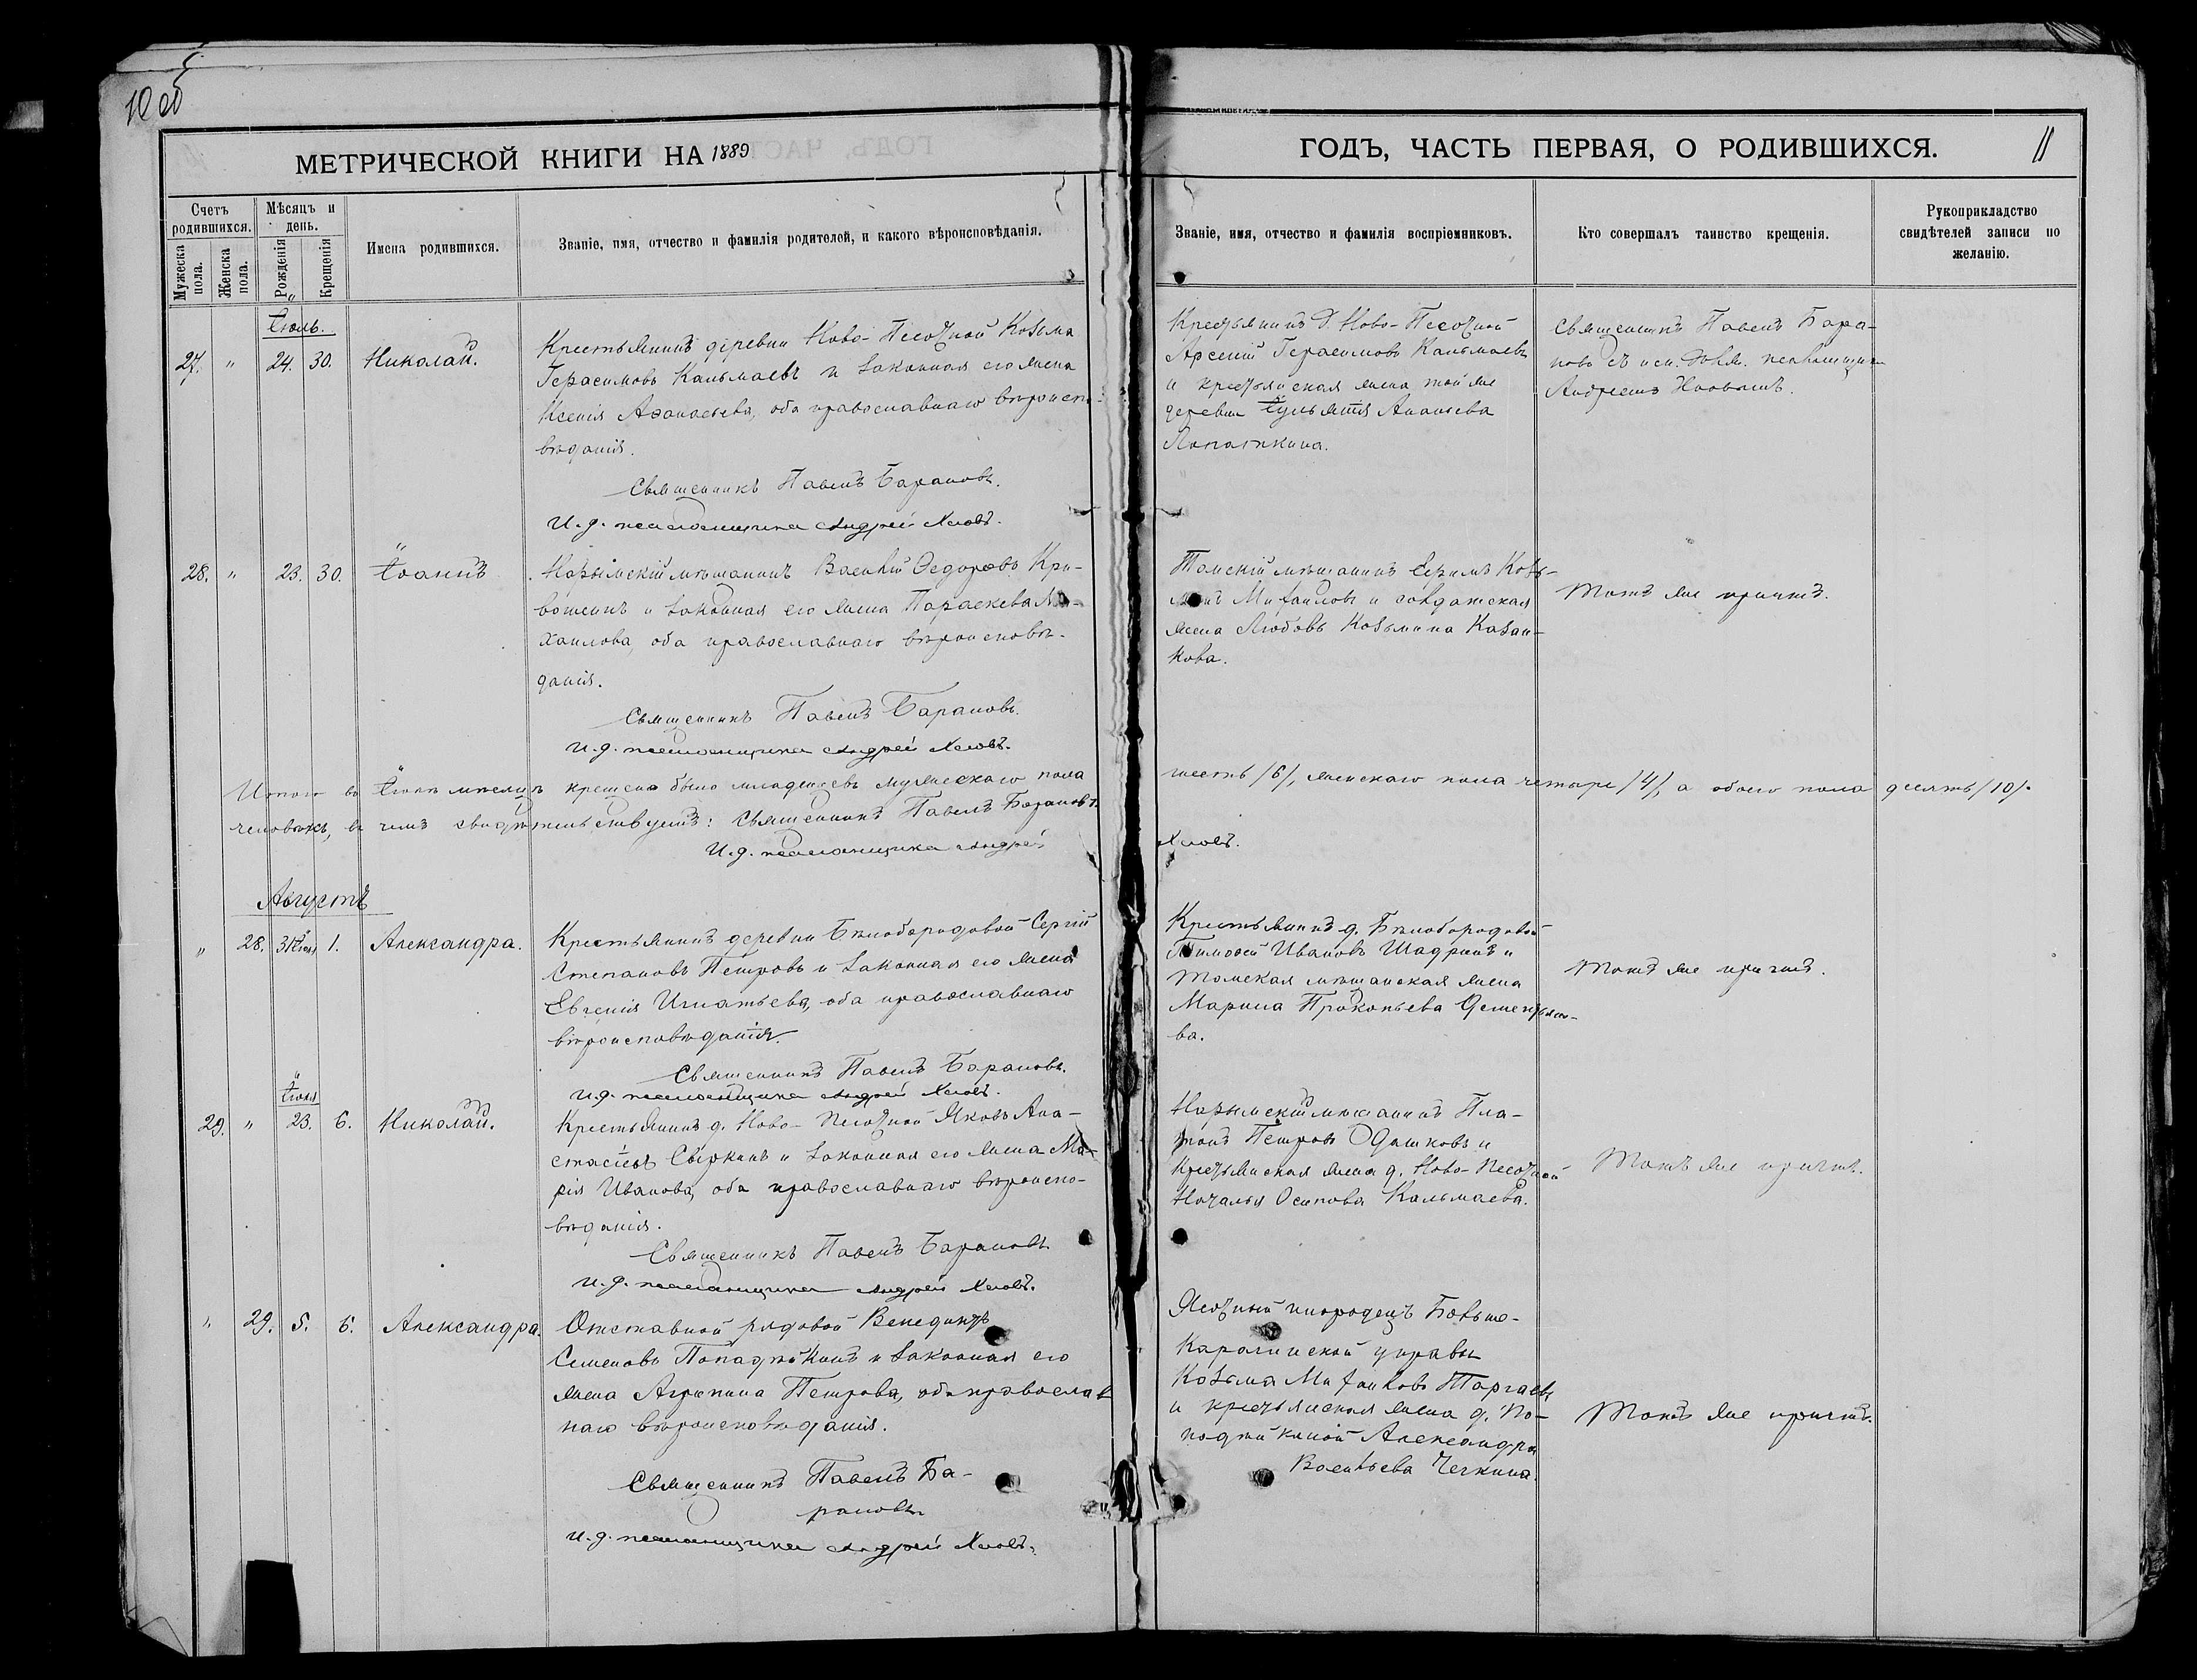 10 об
МЕТРИЧЕСКОЙ КНИГИ НА 1889
Счетъ родившихся.
Мужеска пола.
Женска пола.
Мѣсяцъ и день.
Рожденія
Крещенія
Имена родившихся.
Званіе, имя, отчество и фамилія родителей, и какого вѣроисповѣданія.
Іюль.
27. " 24. 30. Николай.
Крестьянинъ деревни Ново-Песочной Козьма
Герасимовъ Кальмаевъ и законная его жена
Ксенія Аѳонасьева, оба православнаго вѣроиспо-
вѣданія.
Священникъ Павелъ Барановъ.
И. д. псаломщика Андрей
28. " 23. 30. Іоаннъ
Нарымскій мѣщанинъ Василій Ѳедоровъ Кри-
вошеинъ и законная его жена Параскева Ми-
хаилова, оба православнаго вѣроисповѣ-
данія.
Священникъ Павелъ Барановъ.
И. д. псаломщика Андрей
Итого въ Іюлѣ мѣсяцѣ крещено было младенцевъ мужескаго пола
человѣкъ, въ чемъ свидѣтельствуетъ: Священникъ Павелъ Барановъ.
И. д. псаломщика Андрей
Августъ
" 28. 31 Іюля 1. Александра.
Крестьянинъ деревни Бѣлобородовой Сергій
Степановъ Петровъ и законная его жена
Евгенія Игнатьева, оба православнаго
вѣроисповѣданія.
Священникъ Павелъ Барановъ.
И. д. псаломщика Андрей
Іюля
29. " 23. 6. Николай.
Крестьянинъ д. Ново-Песочной Яковъ Ана-
стасіевъ Сыркинъ и законная его жена Ма-
рія Иванова, оба православнаго вѣроиспо-
вѣданія.
Священникъ Павелъ Барановъ
И. д. псаломщика Андрей
" 29. 5. 6. Александра.
Отставной рядовой Венедиктъ
Семеновъ Попадѣйкинъ и законная его
жена Агрипина Петрова, оба православ
наго вѣроисповѣданія.
Священникъ Павелъ Ба-
рановъ
И. д. псаломщика Андрей
ГОДЪ, ЧАСТЬ ПЕРВАЯ, О РОДИВШИХСЯ.
11
Званіе, имя, отчество и фамилія воспріемниковъ.
Кто совершалъ таинство крещенія.
Рукоприкладство свидѣтелей записи по желанію.
Крестьянинъ д. Ново-Песочной
Арсеній Герасимовъ Кальмаевъ
и крестьянская жена той же
деревни Іульянія Ананьева
Лопаткина.
Священникъ Павелъ Бара-
новъ съ исп. долж. псаломщика
Андреемъ
Томскій мѣщанинъ Ефимъ Козь-
Михаиловъ и солдатская
жена Любовь Козьмина Казан-
кова.
Тотъ же причтъ.
шесть /6/, женскаго пола четыре /4/, а обоего пола десять /10/.
Крестьянинъ д. Бѣлобородовой
Тимоѳей Ивановъ Шадринъ и
томская мѣщанская жена
Марина Прокопьева
ва.
Тотъ же причтъ.
Нарымскій мѣщанинъ Пла-
тонъ Петровъ Одышковъ и
Крестьянская жена д. Ново-Песочной
Наталья Осипова Кальмаева.
Тотъ же причтъ.
Ясочный инородецъ Больше-
Карагинской управы
Козьма Михаиловъ Таргаевъ
и крестьянская жена д. По-
падѣйкиной Александра
Васильева Чегкина.
Тотъ же причтъ.